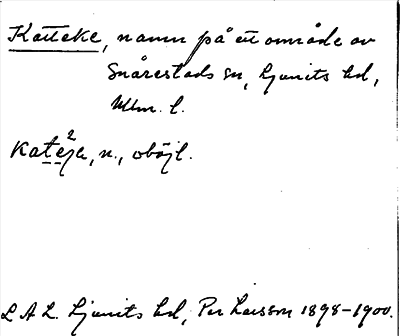 Katteke, namn på ett område av
Snårestads sn, Ljunits hd,
Mlm. l.
katéja, n., oböjl.
2
L A L. Ljunits hd, Per Larsson 1898-1900.